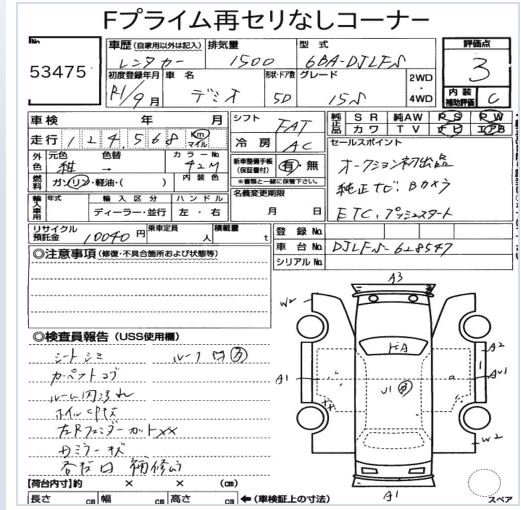 Fプライム再セリなしコーナー
No
53475
車歴 (自家用以外は記入) レンタカー
排気量 1500
型式 6BA-DJLFS
評価点 3
初度登録年月 R1/9月
車名 デミオ
形状・ドア数 5D
グレード 15S
2WD・4WD
内装補助評価 C
車検 年 月
走行 124,568 Km マイル
シフト FAT
冷房 AC
純正品 SR 純AW PS PW
カワ TV ナビ エアB
外色 元色 紺 → 色替
カラーNo 42M
燃料 ガソリン・軽油・( )
内装色
新車整備手帳(保証書付) 有・無
※書類と一緒に保管下さい。
セールスポイント
オークション初出品
純正TC. Bカメラ
ETC. プッシュスタート
輸入車用 年式 輸入区分 ディーラー・並行 ハンドル 左・右
名義変更期限 月 日
リサイクル預託金 10040円
乗車定員 人
積載量 t
登録No.
車台No. DJLFS-628547
シリアルNo.
◎注意事項 (修復・不具合箇所および状態等)
◎検査員報告 (USS使用欄)
シートシミ ルーフ
カーペットコブ
ルーム内汚れ
ホイルCPキズ
左Rフェンダーカットxx
カミラーキズ
各凹 補修
A3
W2
A2
A1
AU1
U1
XX
W2
A1
スペア
【荷台内寸】約 × × (cm)
長さ cm 幅 cm 高さ cm ←(車検証上の寸法)